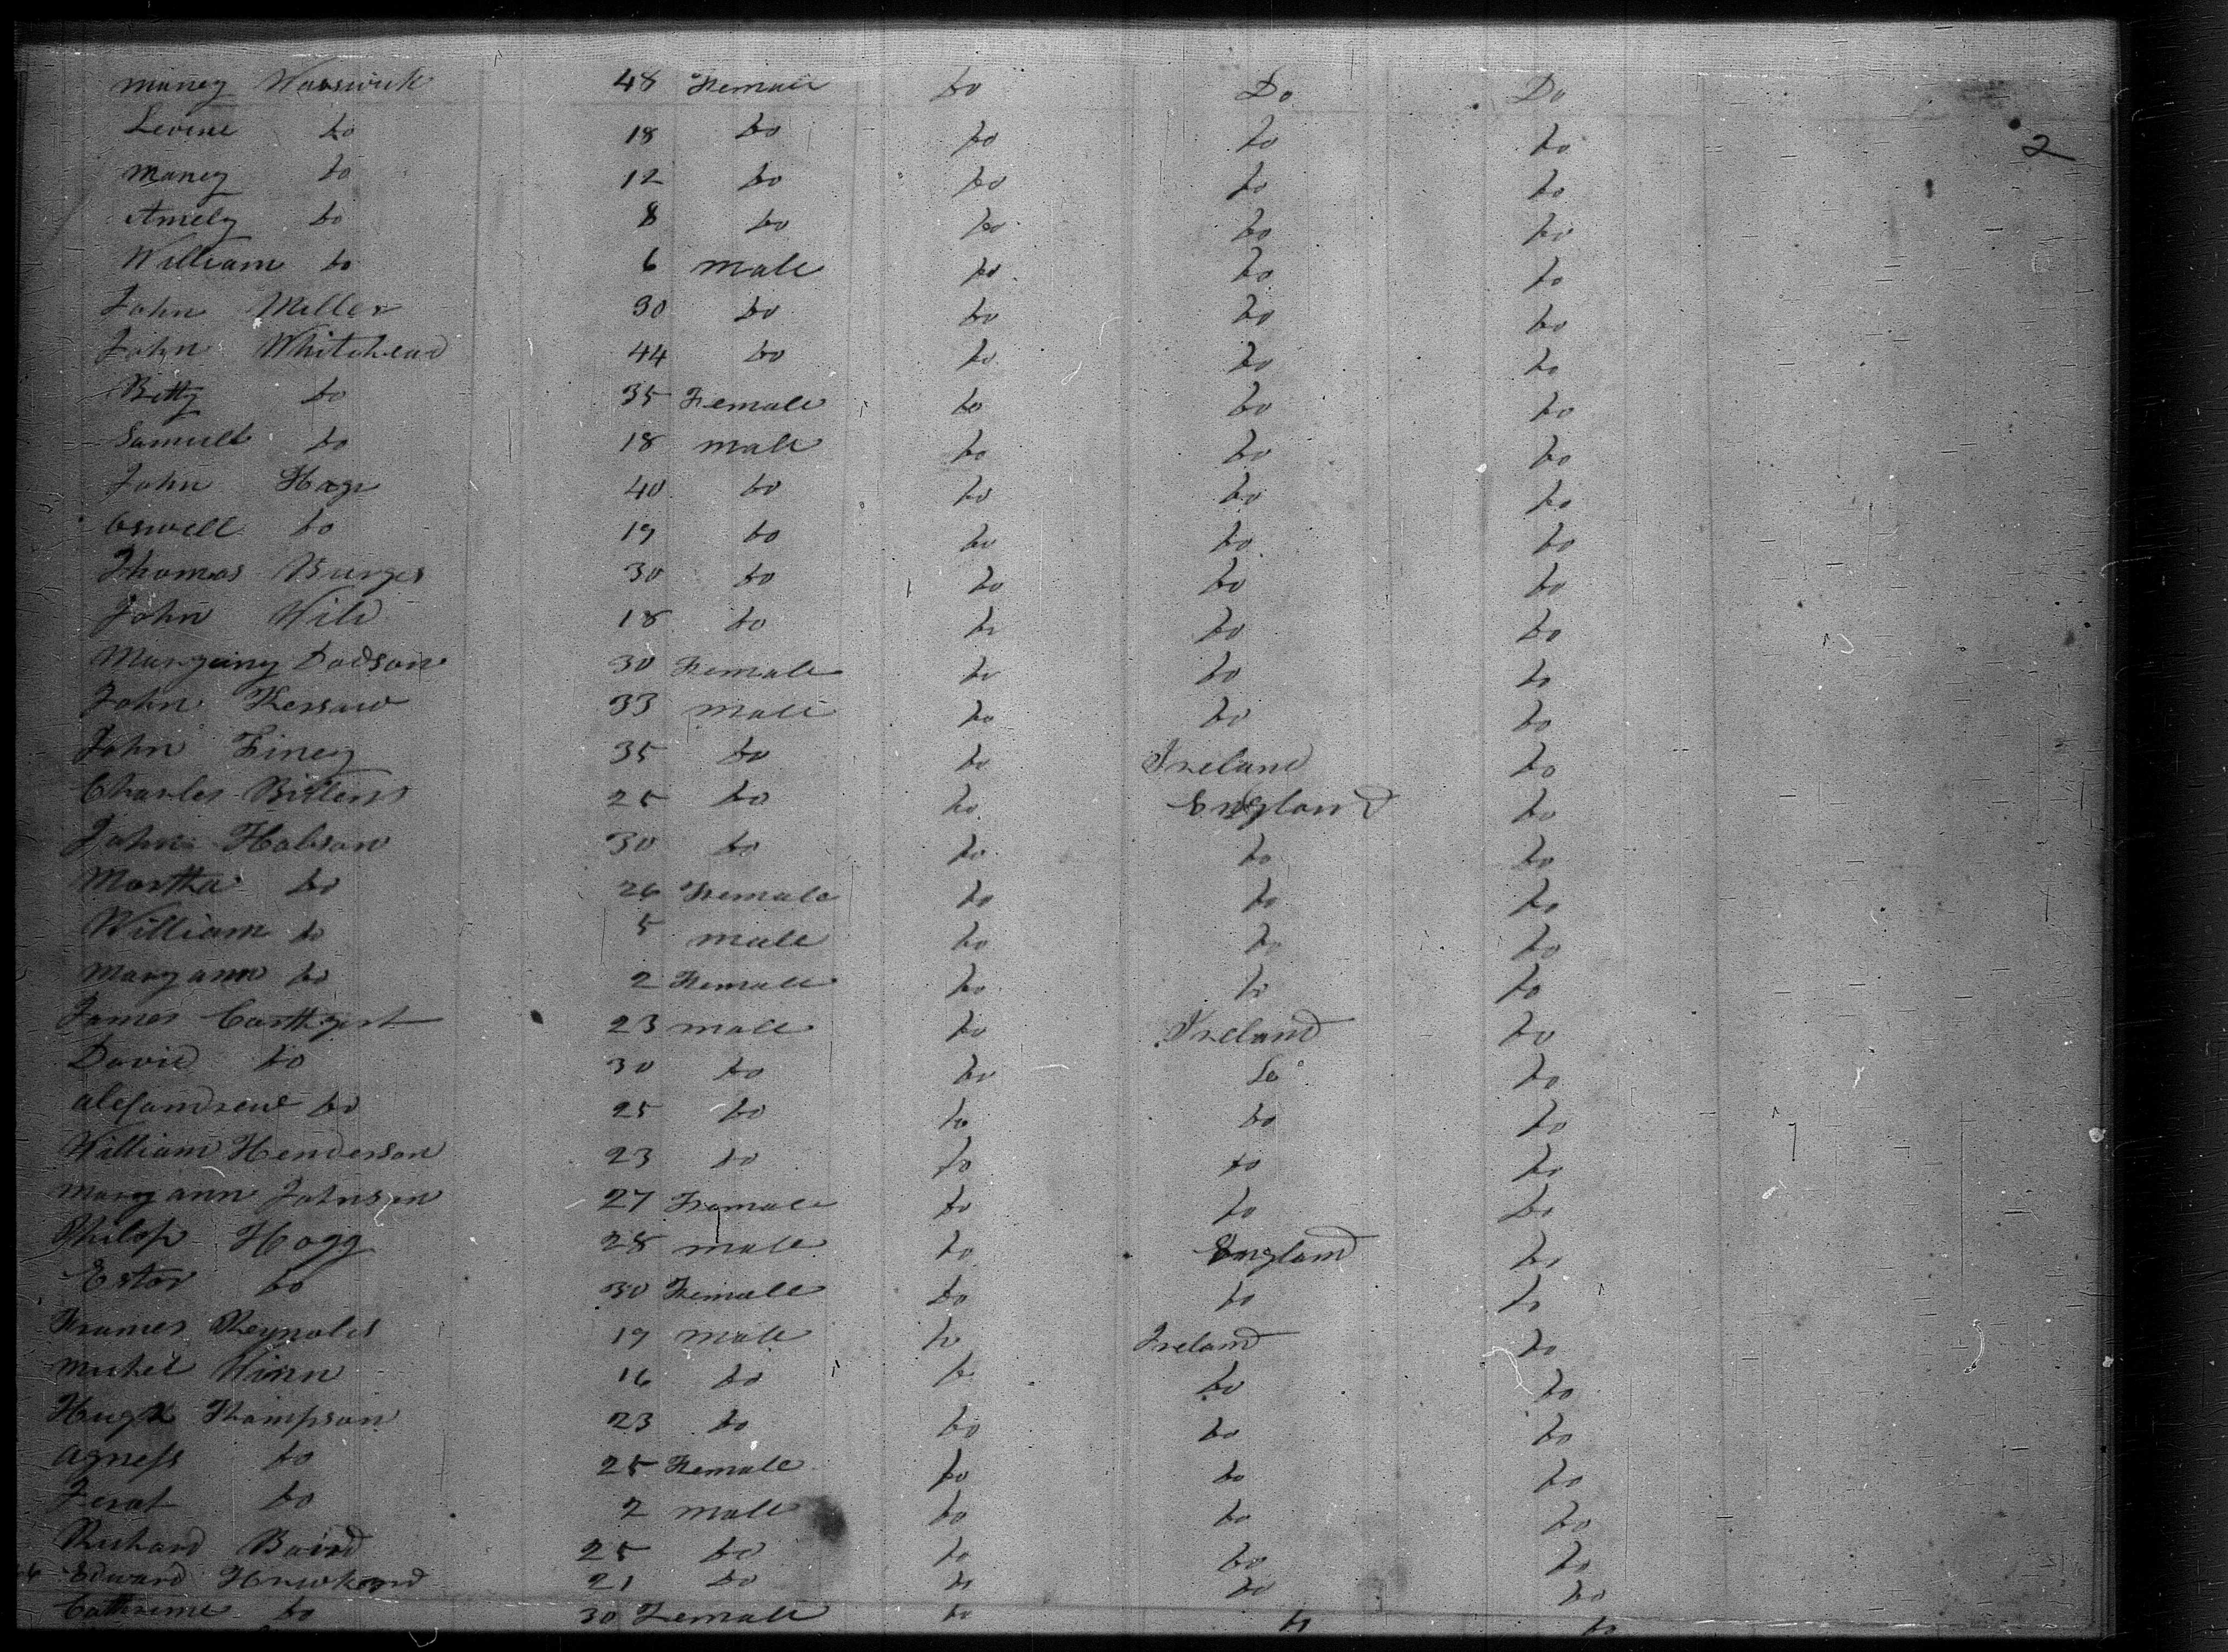 2
Maney Worswick 48 Female Do Do Do
Levine do 18 do do do do
Maney do 12 do do do do
Amely do 8 do do do do
William do 6 male do do do
John Miller 30 do do do do
John Whitehead 44 do do do do
Betty do 35 Female do do do
Samuell do 18 male do do do
John Hage 40 do do do do
Oswell do 19 do do do do
Thomas Burges 30 do do do do
John Wild 18 do do do do
Dodson 30 Female do do do
John Kersaw 33 male do do do
John Finey 35 do do Ireland do
Charles 25 do do England do
John Hobson 30 do do do do
Martha do 26 Female do do do
William do 5 male do do do
Mary ann do 2 Female do do do
James 23 male do Ireland do
David do 30 do do do do
do 25 do do do do
William Henderson 23 do do do do
Mary ann Johnson 27 Female do do do
Philop Hogg 28 male do England do
Ester do 30 Female do do do
Reynolds 19 male do Ireland do
Michel 16 do do do do
Hugh Thompson 23 do do do do
Agness do 25 Female do do do
do 2 male do do do
Richard Baird 25 do do do do
Edward 21 do do do do
Catherine do 30 Female do do do